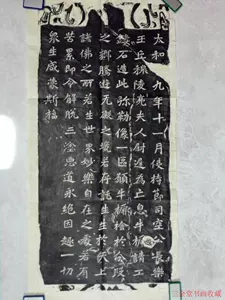 太和 九年十一月使持節司空公長樂
王丘穆陵亮夫人尉遲為亡息牛橛請工
鏤石造此彌勒像一區願牛橛捨於分段
之鄉騰遊无礙之境若存託生生於天上
諸佛之所若生世界妙樂自在之處若有
苦累即令解脫三塗惡道永絕因趣一切
眾生咸蒙斯福